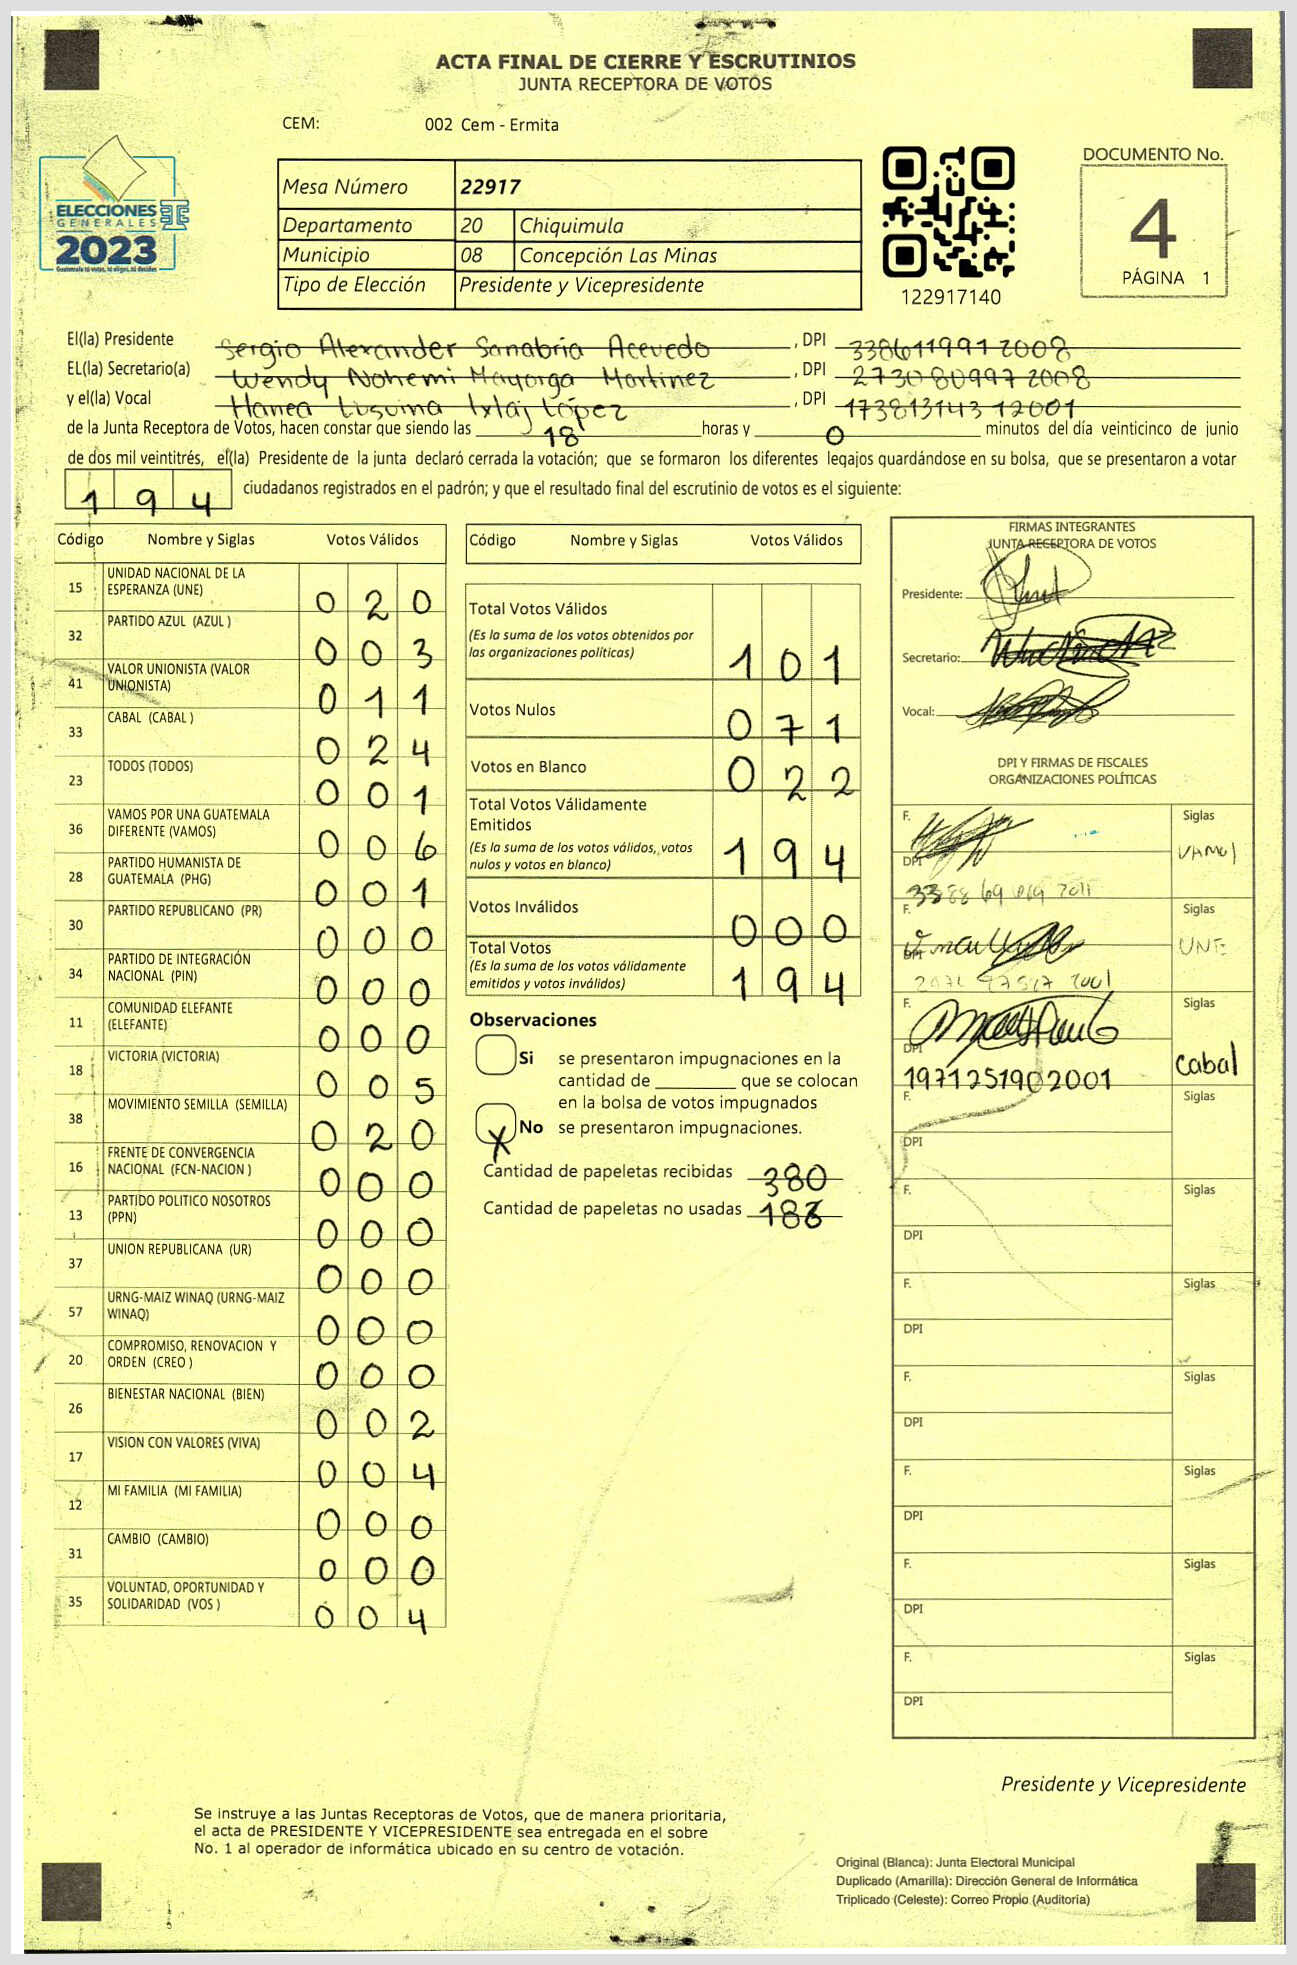 ACTA FINAL DE CIERRE Y ESCRUTINIOS
JUNTA RECEPTORA DE VOTOS
CEM: 002 Cem - Ermita
ELECCIONES
GENERALES
2023
Guatemala tú votas, tú eliges, tú decides
Mesa Número 22917
Departamento 20 Chiquimula
Municipio 08 Concepción Las Minas
Tipo de Elección Presidente y Vicepresidente
122917140
DOCUMENTO No.
4
PÁGINA 1
El(la) Presidente Sergio Alexander Sanabria Acevedo , DPI 338611991 2008
EL(la) Secretario(a) Wendy Nohemi Mayorga Martinez , DPI 2730 80997 2008
y el(la) Vocal López , DPI 173813143 12001
de la Junta Receptora de Votos, hacen constar que siendo las 18 horas y 0 minutos del día veinticinco de junio
de dos mil veintitrés, el(la) Presidente de la junta declaró cerrada la votación; que se formaron los diferentes legajos guardándose en su bolsa, que se presentaron a votar
194 ciudadanos registrados en el padrón; y que el resultado final del escrutinio de votos es el siguiente:
Código Nombre y Siglas Votos Válidos
15 UNIDAD NACIONAL DE LA ESPERANZA (UNE) 020
32 PARTIDO AZUL (AZUL ) 003
41 VALOR UNIONISTA (VALOR UNIONISTA) 011
33 CABAL (CABAL ) 024
23 TODOS (TODOS) 001
36 VAMOS POR UNA GUATEMALA DIFERENTE (VAMOS) 006
28 PARTIDO HUMANISTA DE GUATEMALA (PHG) 001
30 PARTIDO REPUBLICANO (PR) 000
34 PARTIDO DE INTEGRACIÓN NACIONAL (PIN) 000
11 COMUNIDAD ELEFANTE (ELEFANTE) 000
18 VICTORIA (VICTORIA) 005
38 MOVIMIENTO SEMILLA (SEMILLA) 020
16 FRENTE DE CONVERGENCIA NACIONAL (FCN-NACION ) 000
13 PARTIDO POLITICO NOSOTROS (PPN) 000
37 UNION REPUBLICANA (UR) 000
57 URNG-MAIZ WINAQ (URNG-MAIZ WINAQ) 000
20 COMPROMISO, RENOVACION Y ORDEN (CREO ) 000
26 BIENESTAR NACIONAL (BIEN) 002
17 VISION CON VALORES (VIVA) 004
12 MI FAMILIA (MI FAMILIA) 000
31 CAMBIO (CAMBIO) 000
35 VOLUNTAD, OPORTUNIDAD Y SOLIDARIDAD (VOS ) 004
Código Nombre y Siglas Votos Válidos
Total Votos Válidos 101
(Es la suma de los votos obtenidos por
las organizaciones políticas)
Votos Nulos 071
Votos en Blanco 022
Total Votos Válidamente
Emitidos 194
(Es la suma de los votos válidos, votos
nulos y votos en blanco)
Votos Inválidos 000
Total Votos 194
(Es la suma de los votos válidamente
emitidos y votos inválidos)
Observaciones
Si se presentaron impugnaciones en la
cantidad de ________ que se colocan
en la bolsa de votos impugnados
X No se presentaron impugnaciones.
Cantidad de papeletas recibidas 380
Cantidad de papeletas no usadas
FIRMAS INTEGRANTES
JUNTA RECEPTORA DE VOTOS
Presidente:
Secretario:
Vocal:
DPI Y FIRMAS DE FISCALES
ORGANIZACIONES POLÍTICAS
F. Siglas
DPI VAMOS
F. Siglas
DPI UNE
F. Siglas
DPI cabal
1971251902001
F. Siglas
DPI
F. Siglas
DPI
F. Siglas
DPI
F. Siglas
DPI
F. Siglas
DPI
F. Siglas
DPI
F. Siglas
DPI
Presidente y Vicepresidente
Se instruye a las Juntas Receptoras de Votos, que de manera prioritaria,
el acta de PRESIDENTE Y VICEPRESIDENTE sea entregada en el sobre
No. 1 al operador de informática ubicado en su centro de votación.
Original (Blanca): Junta Electoral Municipal
Duplicado (Amarilla): Dirección General de Informática
Triplicado (Celeste): Correo Propio (Auditoría)